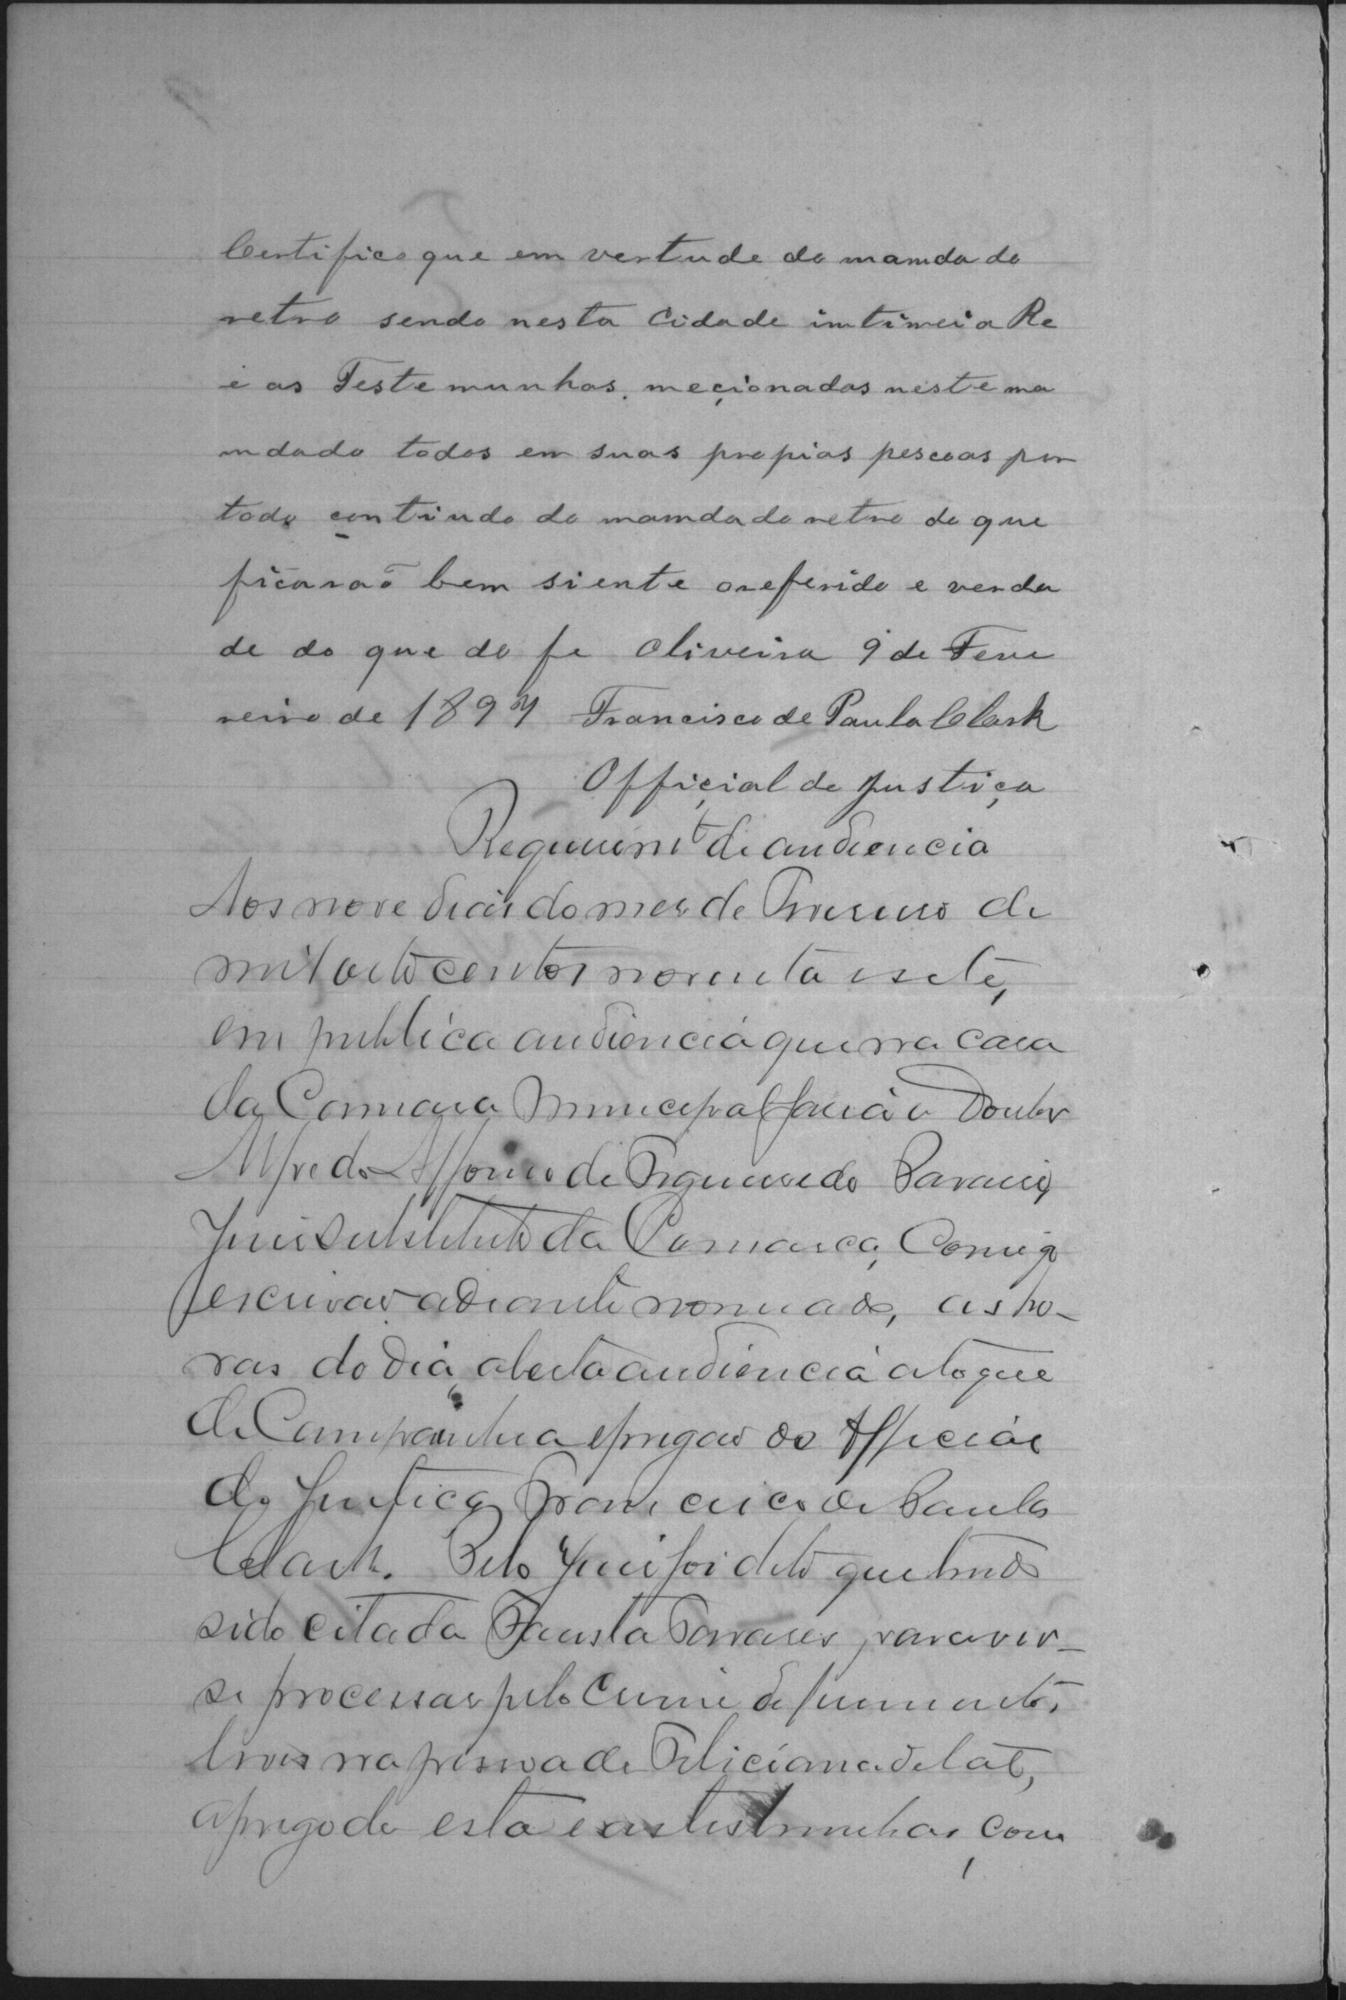 Certifico que em vertude do mamdado
retro sendo nesta Cidade imtimei a Re
e as Testemunhas. meçionadas neste ma
mdado todos em suas propias pescoas por
todo contiudo do mamdado retro do que
ficaraõ bem siente o referido e verda
de do que do fe Oliveira 9 de Feve
reiro de 1897 Francisco de Paula Clark
Offiçial de justiça
Requerimto de audiencia
Aos nove dias do mes de Fevereiro de
mil oito centos noventa e sete,
em publica audiencia que na casa
da Camara Municipal fazia o Doutor
Alfredo Affonso de Figueiredo
Juis Substituto da Comarca, Comigo
escrivaõ adiante nomeado, as ho-
ras do dia, aberta audiencia a toque
de Campainha e pregaõ do Official
de Justiça Francisco de Paula
Clark. Pelo Juis foi dito que tendo
sido citada Fausta Tavares para ver-
se processar pelo Crime de ferimentos
leves na pessoa de Feliciana de tal,
apregoda esta e as testemunhas, com